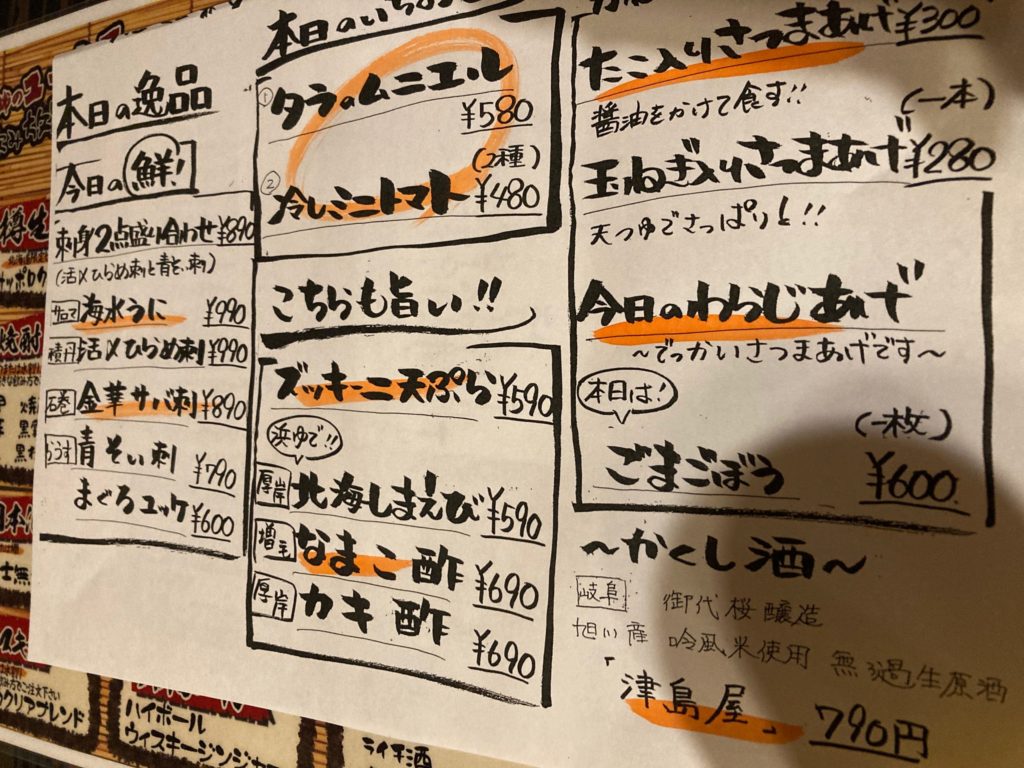 本日の逸品
今日の鮮!
刺身2点盛り合わせ ¥890
(活〆ひらめ刺と青そい刺)
サロマ 海水うに ¥990
積丹 活〆ひらめ刺 ¥990
石巻 金華サバ刺 ¥890
らうす 青そい刺 ¥790
まぐろユッケ ¥600
本日のいち
① タラのムニエル
¥580
(2種)
② 冷しミニトマト ¥480
こちらも旨い!!
ズッキーニ天ぷら ¥590
浜ゆで!!
厚岸 北海しまえび ¥590
増毛 なまこ酢 ¥690
厚岸 カキ酢
¥690
たこ入りさつまあげ ¥300
醤油をかけて食す!!
(一本)
玉ねぎ入りさつまあげ ¥280
天つゆでさっぱりと!!
今日のわらじあげ
〜でっかいさつまあげです〜
本日は!
(一枚)
ごまごぼう ¥600
〜かくし酒〜
岐阜 御代桜醸造
旭川産 吟風米使用 無濾過生原酒
「津島屋」 790円
樽生
焼酎
クリアブレンド
ハイボール
ウイスキージンジャ
ライチ酒